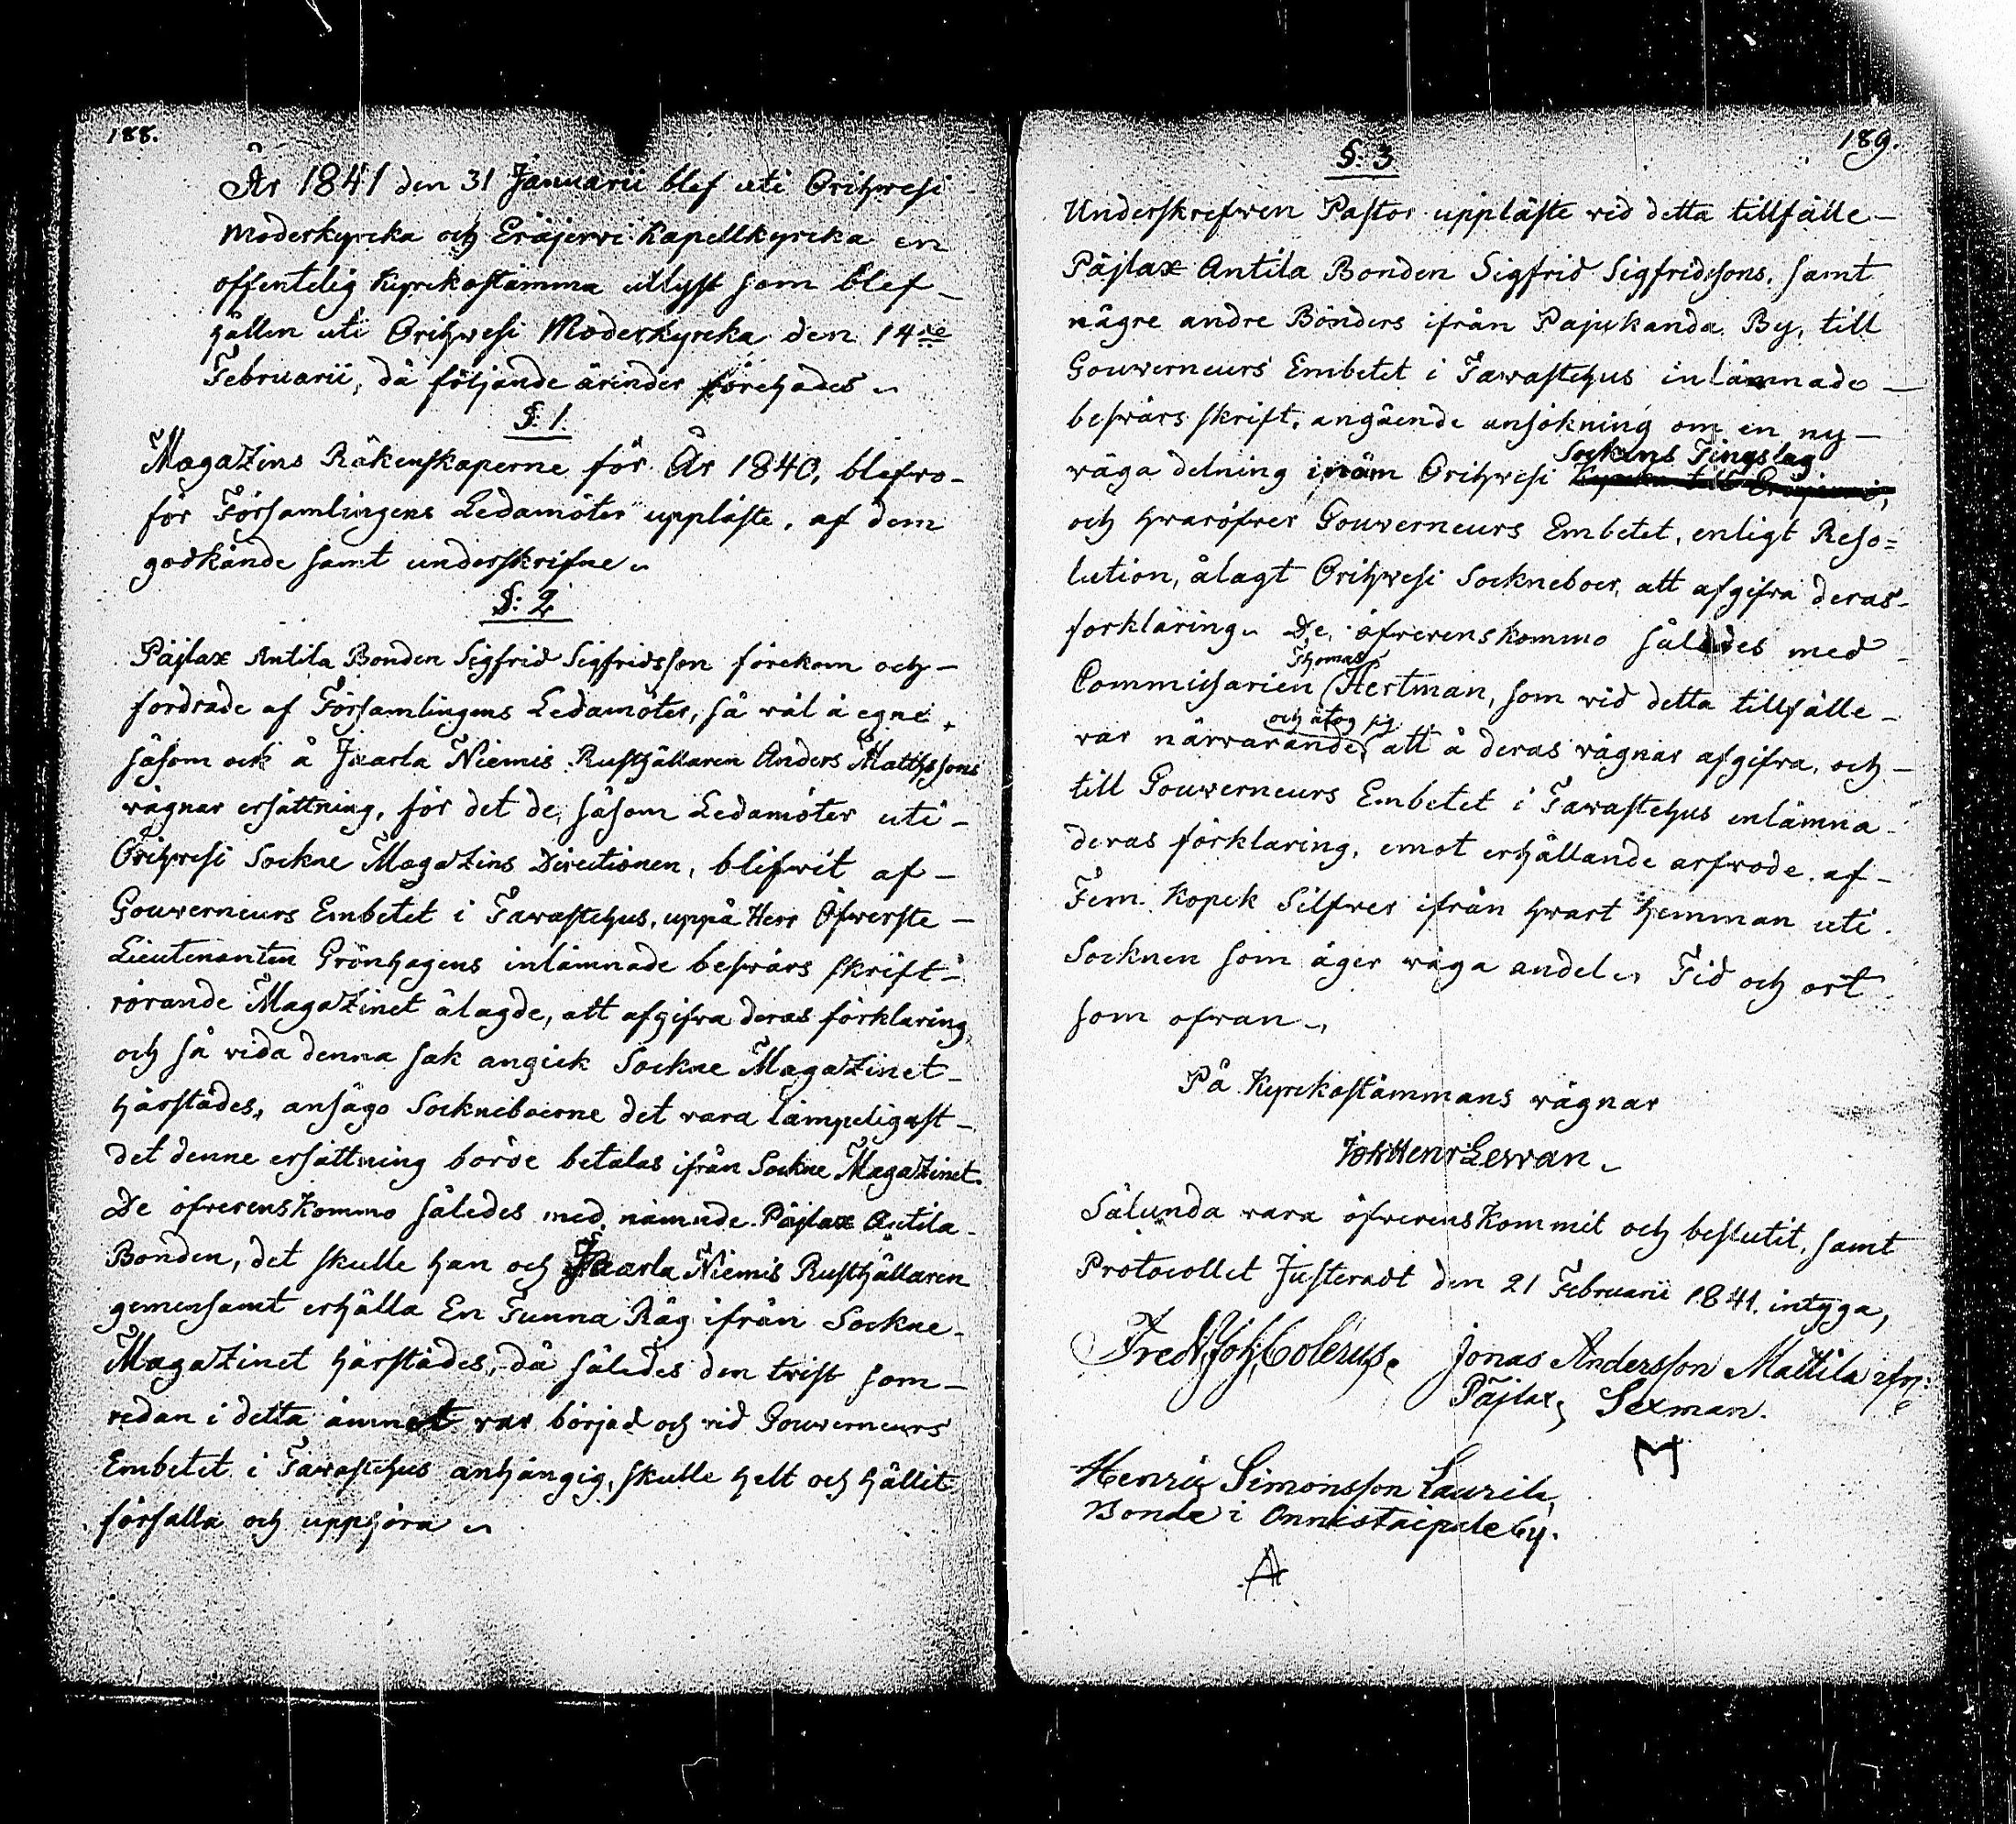 188.
År 1841 den 31 Januarii blef uti Orihwesi
Moderkyrcka och Eräjerwi Kapellkyrcka en
offentelig Kyrckostämma utlyst som blef
hållen uti Orihwesi Moderkyrcka den 14de
Februarii, då följande ärinder förehades.
§: 1.
Magazins Räkenskaperne för År 1840, blefwo
för Församlingens Ledamöter uppläste, af dem
godkände samt underskrifne.
§: 2
Päjlax Antila Bonden Sigfrid Sigfridsson förekom och
fordrade af Församlingens Ledamöter, så wäl å egne,
såsom ock å Juarla Niemis Rusthållaren Anders Mathssons
wägnar ersättning, för det de, såsom Ledamöter uti
Orihwesi Sockne Magazins Directionen, blifwit af
Gouverneurs Embetet i Tawastehus, uppå Herr Öfwerste
Lieutenanten Grönhagens inlämnade beswärs skrift
rörande Magazinet ålagde, att afgifwa deras förklaring,
och så wida denna sak angick Sockne Magazinet
härstädes, ansågo Sockneboerne det wara lämpeligast
det denne ersättning börde betalas ifrån Sockne Magazinet.
De öfwerenskommo således med nämnde Päjlax Antila
Bonden, det skulle han och Juarla Niemis Rusthållaren
gemensamt erhålla En Tunna Råg ifrån Sockne
Magazinet härstädes, då således den twist som
redan i detta ämnet war börjad och wid Gouverneurs
Embetet i Tawastehus anhängig, skulle helt och hållit
förfalla och upphöra.
189.
§: 3
Underskrefwen Pastor uppläste wid detta tillfälle
Päjlax Antila Bonden Sigfrid Sigfridssons, samt
någre andre Bönders ifrån Pajukanda By, till
Gouverneurs Embetet i Tawastehus inlämnade
beswärs skrift, angående ansökning om en ny
wäga delning inom Orihwesi Sockens Tingslag
och hwaröfwer Gouverneurs Embetet, enligt Reso=
lution, ålagt Orihwesi Sockneboer, att afgifwa deras
förklaring. De öfwerenskommo således med
Commissarien Thomas Hertman, som wid detta tillfälle
war närwarande, och åtog sig att å deras wägnar afgifwa, och
till Gouverneurs Embetet i Tawastehus inlämna
deras förklaring, emot erhållande arfwode af
Fem Kopek Silfwer ifrån hwart Hemman uti
Socknen som äger wäga andel. Tid och ort
som ofwan.
På Kyrckostämmans wägnar
Joh Henr Lewan.
Sålunda wara öfwerenskommit och beslutit, samt
Protocollet Justeradt den 21 Februarii 1841, intyga,
Fredr. Joh. Colerus. Jonas Andersson Mattila ifr:
Päjlax, Sexman.
M
Henric Simonsson Laurila,
Bonde i Onnistaipale by.
A